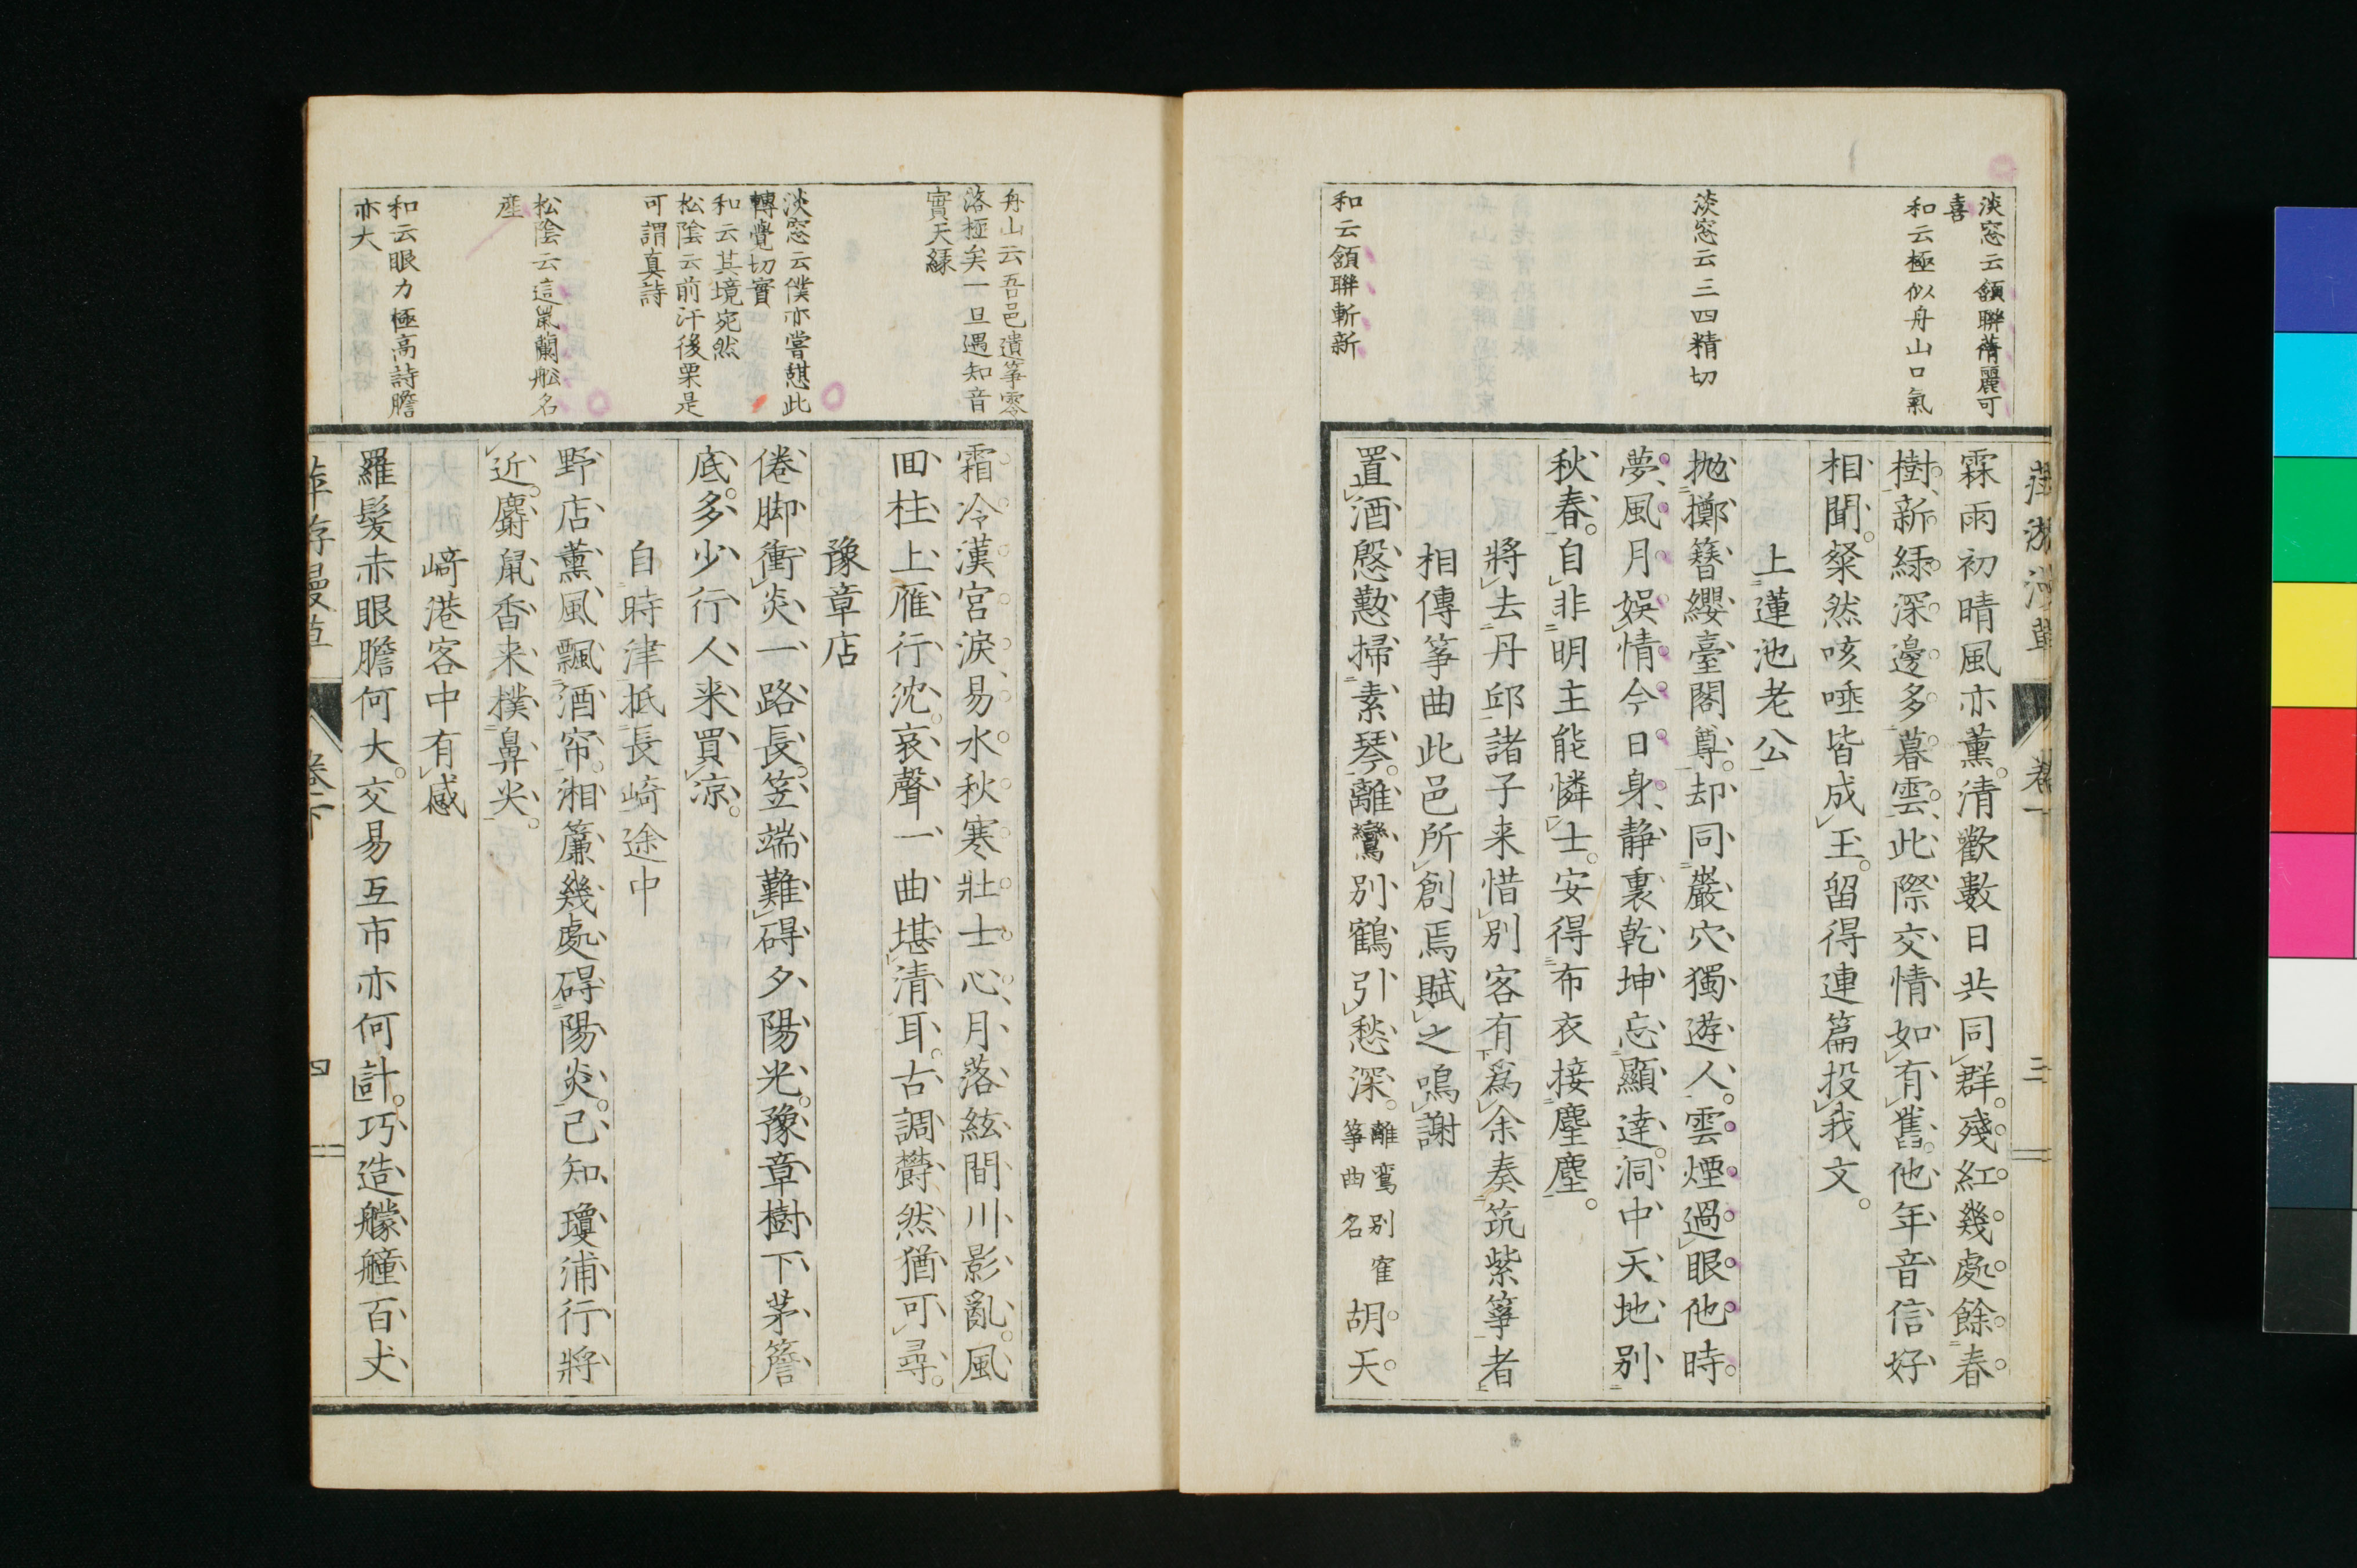 淡窓云頷聯蒨麗可
喜
和云極似舟山口氣
淡窓云三四精切
和云頷聯斬新
霖雨初晴風亦薫清歡數日共同群殘紅幾處餘春
樹新綠深邊多暮雲此際交情如有舊他年音信好
相聞粲然咳唾皆成玉留得連篇投我文
上蓮池老公
抛擲簪纓臺閣尊却同巖穴獨遊人雲煙過眼他時
夢風月娛情今日身静裏乾坤忘顯達洞中天地別
秋春自非明主能憐士安得布衣接塵塵
將去丹邱諸子来惜別客有爲余奏筑紫箏者
相傳箏曲此邑所創焉賦之鳴謝
置酒慇懃掃素琴離鸞別鶴引愁深離鸞別寉箏曲名胡天
卷下
三
舟山云吾邑遺箏零
落極矣一旦遇知音
實天緣
淡窓云僕亦嘗憩此
轉覺切實
和云其境宛然
松陰云前汗後栗是
可謂真詩
松陰云這鼠蘭舩名
産
和云眼力極高詩膽
亦大
霜冷漢宮淚易水秋寒壯士心月落絃間川影亂風
回柱上雁行沈哀聲一曲堪清耳古調欝然猶可尋
豫章店
倦脚衝炎一路長笠端難碍夕陽光豫章樹下茅簷
底多少行人来買凉
自時津抵長崎途中
野店薫風飄酒帘湘簾幾處碍陽炎已知瓊浦行將
近麝鼠香来撲鼻尖
﨑港客中有感
羅髮赤眼膽何大交易互市亦何計巧造艨艟百丈
卷下
四